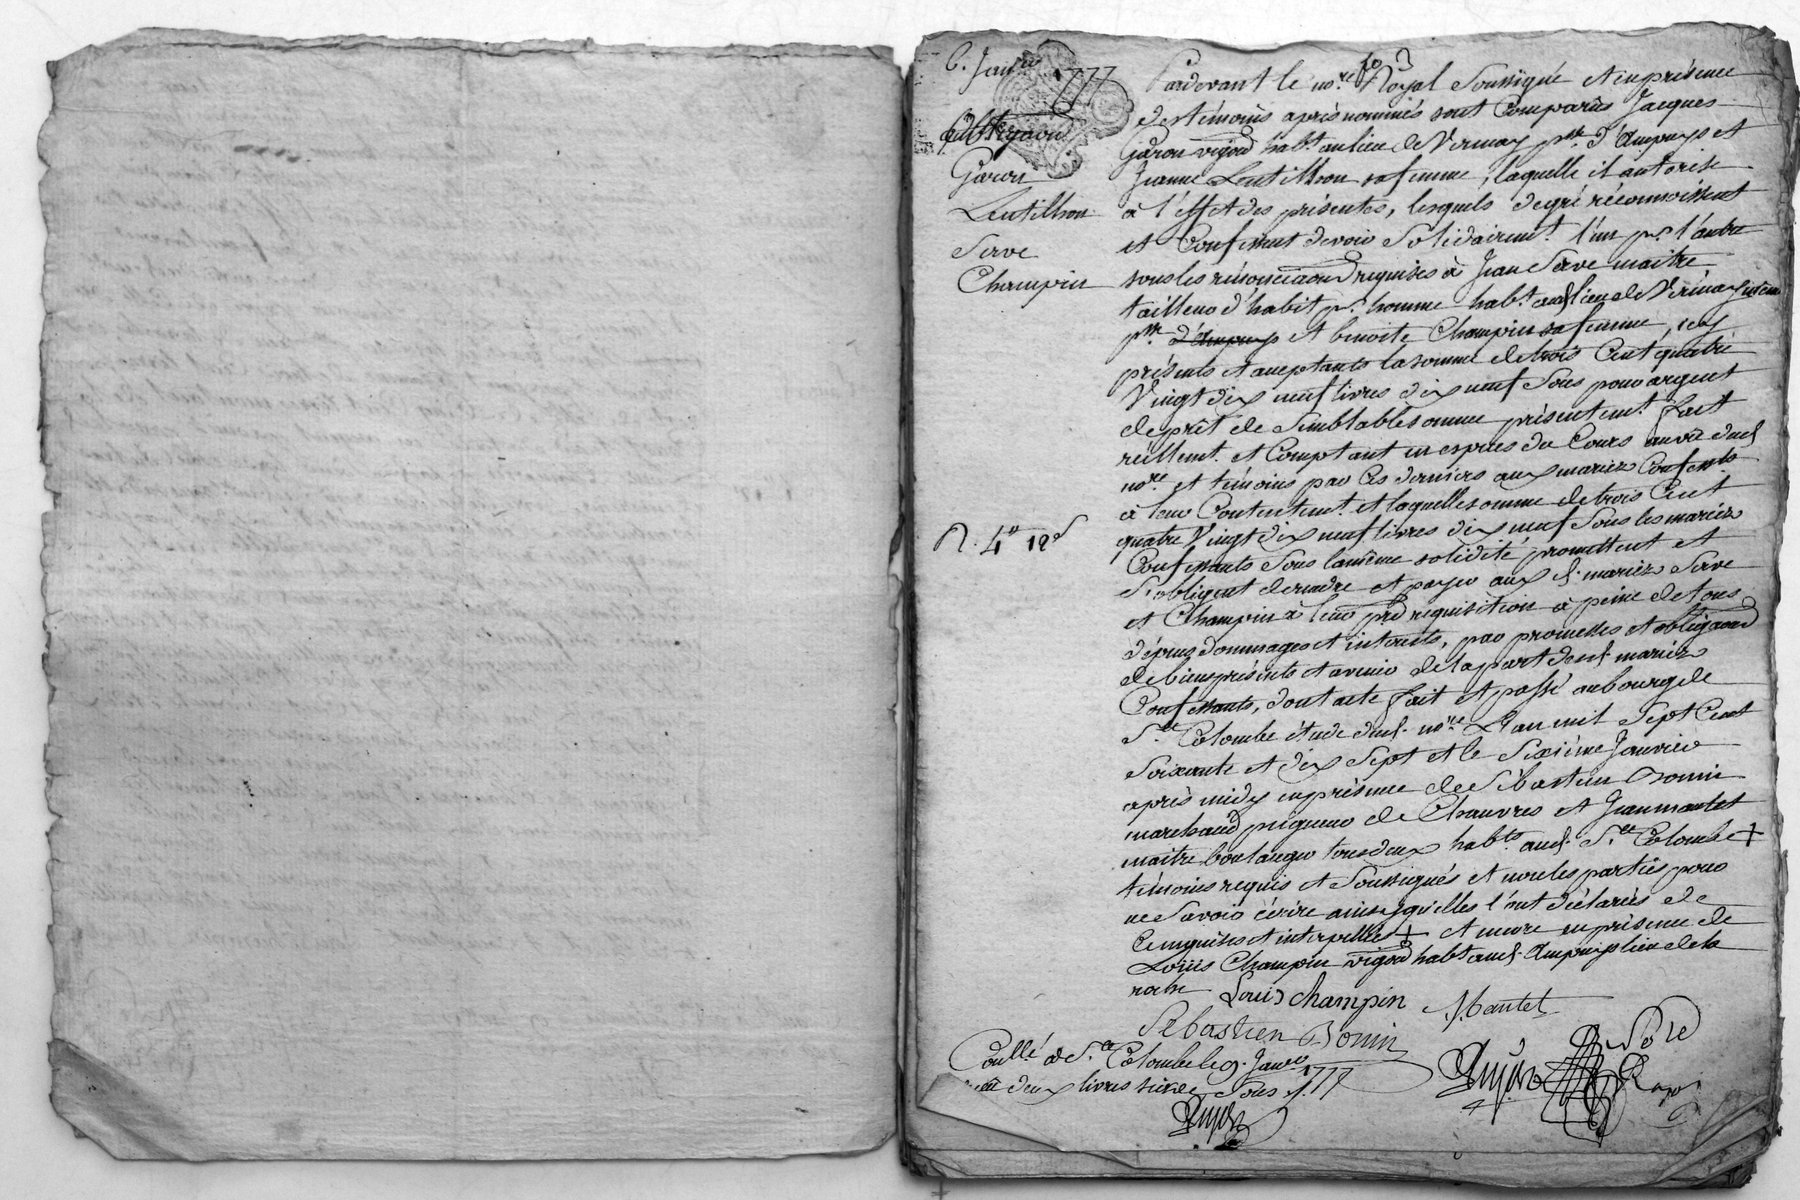 6. Janv.er 1777
obligaon
Garon
Lentillon
Serve
Champin
R. 4# 12s
fo 3
Pardevant le no.re Royal Soussigné et en présence
des témoins après nommés sont comparus Jacques
Garon vigon habt. au lieu de Vernay p.sse d'Ampuys et
Jeanne Lentillon sa femme, laquelle il autorise
à l'effet des présentes, lesquels de gré réconnoissent
et Confessent devoir Solidairemt. l'un pr. l'autre
sous les rénonciaons requises à Jean Serve maitre
tailleur d'habit pr. homme habt. aud. lieu de Vernay même
p.sse d'Ampuys et benoite Champin sa femme, icy
présents et acceptants la somme de trois Cent quatre
Vingt dix neuf livres dix neuf Sous pour argent
de prêt de Semblable somme présentemt. fait
réellemt. et Comptant en espèces du Cours au vû dud.
no.re et témoins par ces derniers aux mariez Confessants
à leur Contentemt. et laquelle somme de trois Cent
quatre Vingt dix neuf livres dix neuf Sous les mariez
Confessants Sous la même solidité promettent et
S'obligent de rendre et payer aux d. mariez Serve
et Champin à leur pre requisition à peine de tous
dépens dommages et interets, par promesses et obligaons
de biens présents et avenir de la part desd. mariez
Confessants, dont acte fait et passé au bourg de
S.te Colombe étude dud. no.re L'an mil Sept Cent
Soixante et dix Sept et le Sixième Janvier
après midy en présence de Sébastien Bonin
marchand peigneur de Chanvres et Jean mantet
maitre boulanger tous deux habts. aud. S.te Colombe +
témoins requis et Soussignés et non les parties pour
ne Savoir écrire ainsy qu'elles l'ont déclarés de
ce enquises et interpellées + et encore en présence de
Loüis Champin vigon habt. aud. Ampuys lieu de la
roche
Louis champin J. Mantet
Sébastien Bonin
Conllé à S.te Colombe le 9. Janv.er 1777
deux livres seize Sous